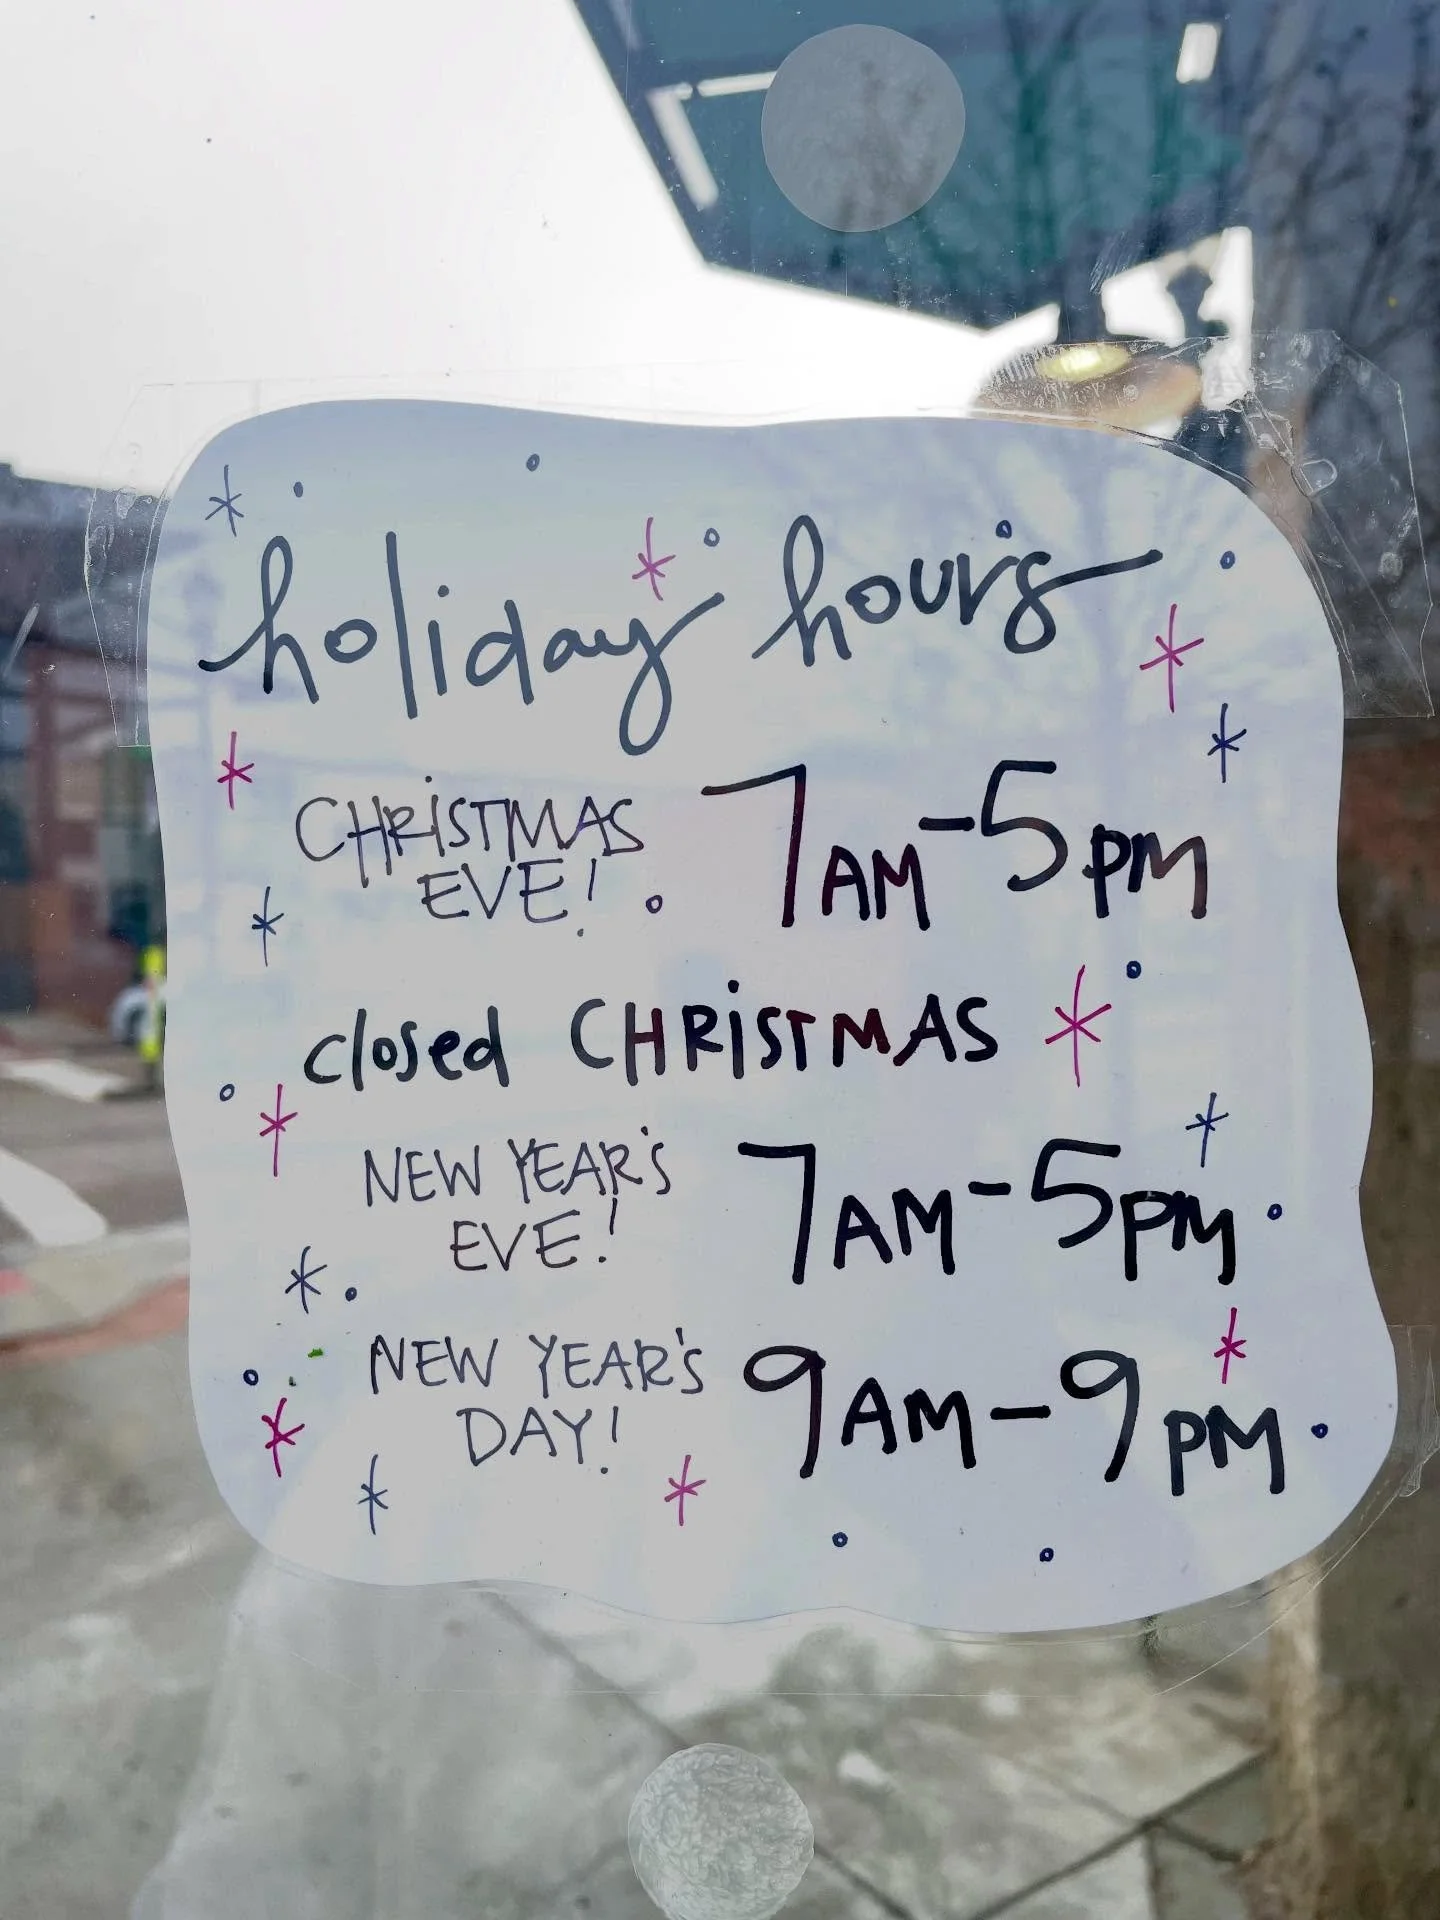 holiday hours
CHRISTMAS EVE! 7AM-5PM
closed CHRISTMAS
NEW YEAR'S EVE! 7AM-5PM
NEW YEAR'S DAY! 9AM-9PM